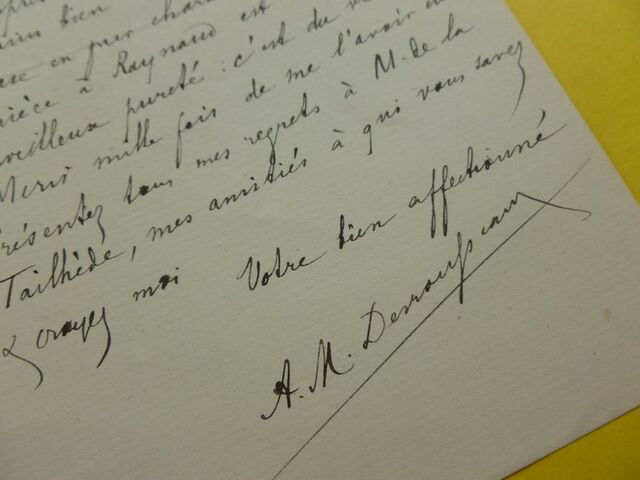 bien
est en pur char
pièce à Raynaud est
veilleux pureté : c'est du v
Merci mille fois de me l'avoir en
présentez tous mes regrets à M. de la
Tailhède, mes amitiés à qui vous savez
& croyez moi Votre bien affectionné
A. M. Desrousseaux